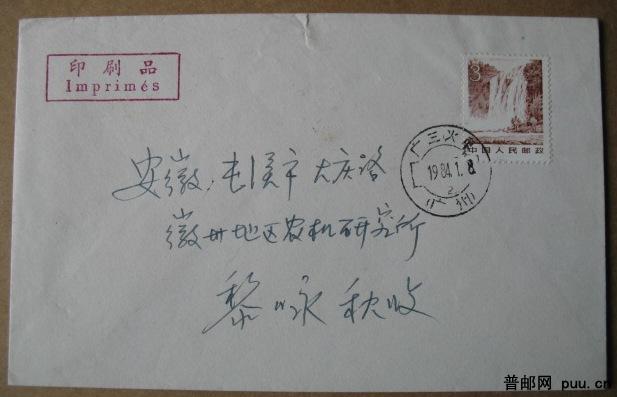 印刷品
Imprimés
3
中国人民邮政
广三火
1984.1.8
2
广州
安徽,屯溪市大庆路
徽州地区农机研究所
黎咏秋收
普邮网 puu.cn